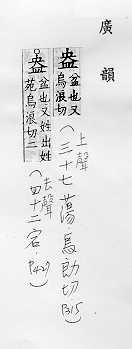 廣韻
盎 盆也又烏浪切
(上聲
三十七蕩·烏朗切
P.315)
盎 盆也又姓出姓苑烏浪切二
(去聲
四十二宕·P.429)